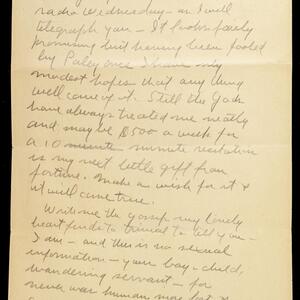 radio Wednesday – or I will
telegraph you – It looks fairly
promising but having been fooled
by Paley once I have only
modest hopes that any thing
will come of it. Still the Gods
have always treated me neatly
and, maybe $500 a week for
a 10 minute minute recitation
is my next little gift from
fortune. Make a wish for it &
it will come true.
Write me the gossip my lovely
heart finds to tell you –
I am – and this is no sexual
information – your boy – child,
wandering servant – for
never was human more